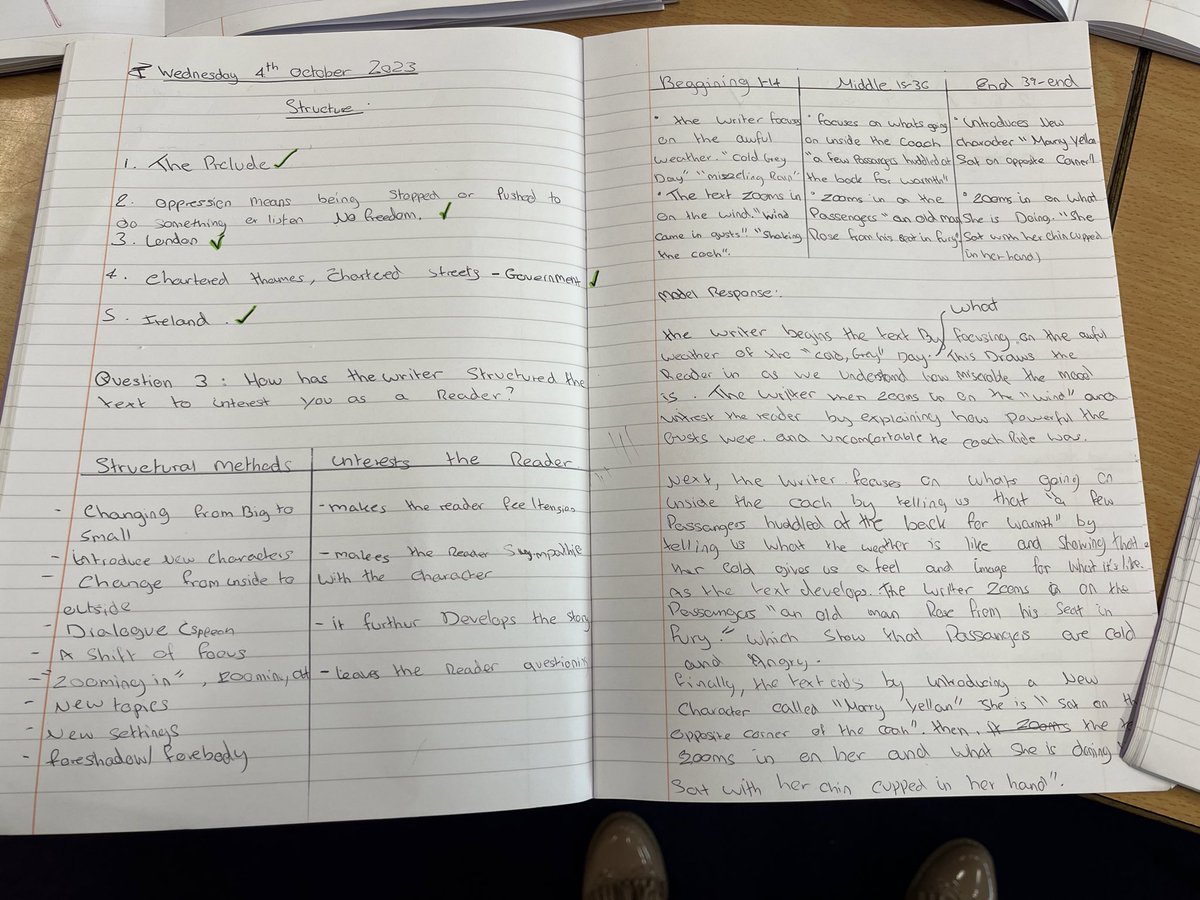 Wednesday 4th October 2023
Structure.
1. The Prelude ✓
2. Oppression means being stopped or pushed to
do something or listen No freedom. ✓
3. London ✓
4. Chartered thames, Chartced streets - Government ✓
5. Ireland. ✓
Question 3: How has the writer Structured the
text to interest you as a Reader?
Structural methods
- Changing from Big to
Small
- introduce new characters
- Change from inside to
outside
- Dialogue (speech
- A shift of focus
- "Zooming in", zooming out
- New topics
- New settings
- foreshadow/forebody
interests the Reader
- makes the reader feel tension
- makes the Reader Sympathie
with the character
- it furthur Develops the story
- leaves the Reader questioning
Beggining 1-14
• the writer focus
on the awful
weather. "cold Grey
Day" "mizzling Rain"
• The text zooms in
on the wind. "wind
came in gusts". "Shaking
the coach".
Middle 15-36
• focuses on whats going
on inside the Coach
"a few Passangers huddled at
the back for warmth"
• zooms in on the
Passengers "an old man
Rose from his seat in fury"
End 37-end
• introduces New
charachter "Marry Yellan"
Sat on opposite Corner"
• zooms in on what
She is Doing. "She
Sat with her chin cupped
in her hand)
Model Response:
what
the writer begins the text By focusing on the awful
weather of the "cold, Grey" Day. This Draws the
Reader in as we understand how miserable the mood
is. The writker then zooms in on the "wind" and
intrest the reader by explaining how powerful the
Gusts wee. and uncomfortable the coach Ride was.
Next, the writer focuses on whats going on
inside the cach by telling us that "a few
Passangers huddled at the back for warmth" by
telling us what the weather is like and showing that
her cold gives us a feel and image for what it's like.
as the text develops. The writer zooms on the
Passangers "an old man Rose from his seat in
fury." which show that Passangers are cold
and Angry.
finally, the text ends by introducing a New
Character called "Marry Yellan" She is "Sat on the
opposite corner of the coah". then, it zooms the
zooms in on her and what she is doing
Sat with her chin cupped in her hand".